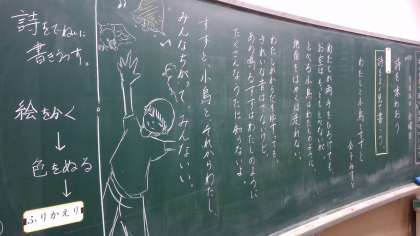 詩を味わおう
わたしと小鳥とすずと
金子みすゞ
わたしが両手をひろげても、
お空はちっともとべないが、
とべる小鳥はわたしのように、
地面をはやくは走れない。
わたしがからだをゆすっても、
きれいな音はでないけど、
あの鳴るすずはわたしのように
たくさんなうたは知らないよ。
すずと、小鳥と、それからわたし、
みんなちがって、みんないい。
詩をていねいに
書きうつす。
絵をかく
↓
色をぬる
↓
ふりかえり